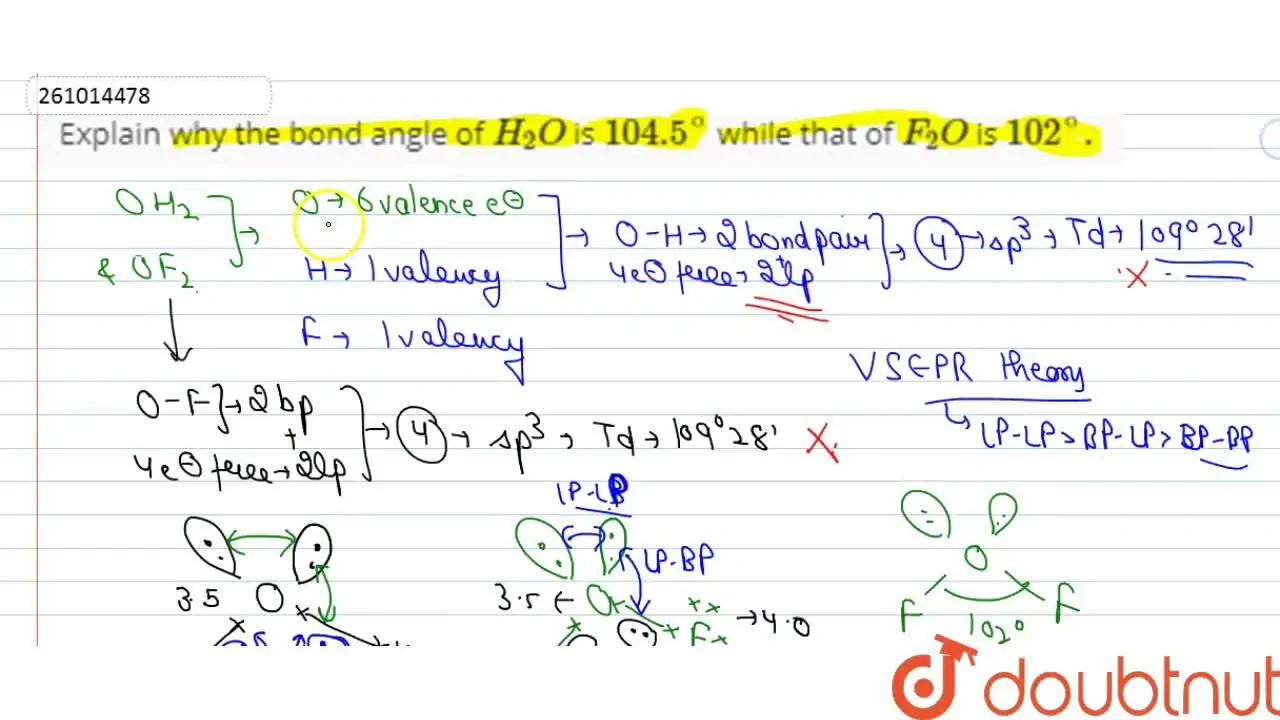 261014478
Explain why the bond angle of H₂O is 104.5° while that of F₂O is 102°.
OH₂
& OF₂
O → 6 valence e⊖
H → 1 valency
F → 1 valency
O-H → 2 bond pair
+
4e⊖ free → 2lp
→ 4 → sp³, Td → 109°28' X
O-F → 2bp
+
4e⊖ free → 2lp
→ 4 → sp³, Td → 109°28' X
VSEPR theory
LP-LP > BP-LP > BP-BP
3.5 O
LP-LP
LP-BP
3.5 ← O
F → 4.0
O
F F
102°
doubtnut